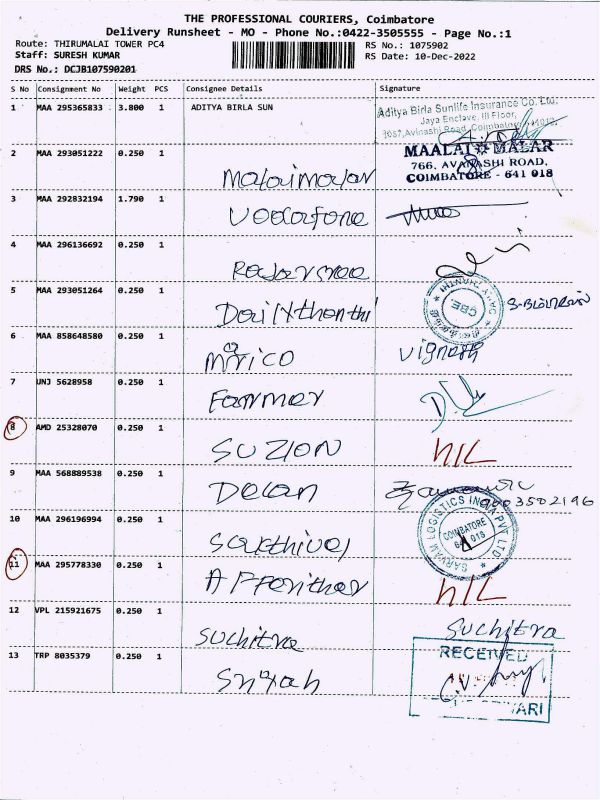 THE PROFESSIONAL COURIERS, Coimbatore
Delivery Runsheet - MO - Phone No.:0422-3505555 - Page No.:1
Route: THIRUMALAI TOWER PC4
RS No.: 1075902
Staff: SURESH KUMAR
RS Date: 10-Dec-2022
DRS No.: DCJB107590201
S No Consignment No Weight PCS Consignee Details Signature
1 MAA 295365833 3.800 1 ADITYA BIRLA SUN
Aditya Birla Sunlife Insurance Co. Ltd.
Jaya Enclave, III Floor,
1057, Avinashi Road, Coimbatore
2 MAA 293051222 0.250 1 Malaimalar
MAALAI MALAR
766, AVANASHI ROAD,
COIMBATORE - 641 018
3 MAA 292832194 1.790 1 Vodafone
4 MAA 296136692 0.250 1
5 MAA 293051264 0.250 1 Dailythanthi
DAILY THANTHI
CBE.
6 MAA 858648580 0.250 1 Marico Vignesh
7 UNJ 5628958 0.250 1 Farmer
8 AMD 25328070 0.250 1 SUZION NIL
9 MAA 568889538 0.250 1 Decan
9003502196
10 MAA 296196994 0.250 1 Sakthivel
SARVAM LOGISTICS INDIA PVT LTD
COIMBATORE
641 018
11 MAA 295778330 0.250 1 NIL
12 VPL 215921675 0.250 1 Suchitra Suchitra
13 TRP 8035379 0.250 1
RECEIVED